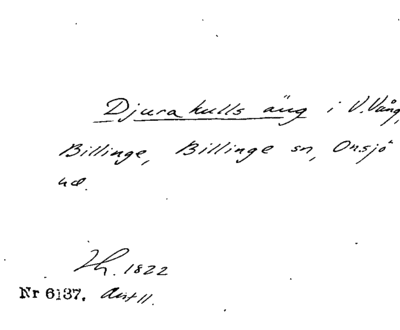 Djurakulls äng i V. Vång,
Billinge, Billinge sn, Onsjö
hd.
Zh. 1822
Nr 6137. Avst 11.